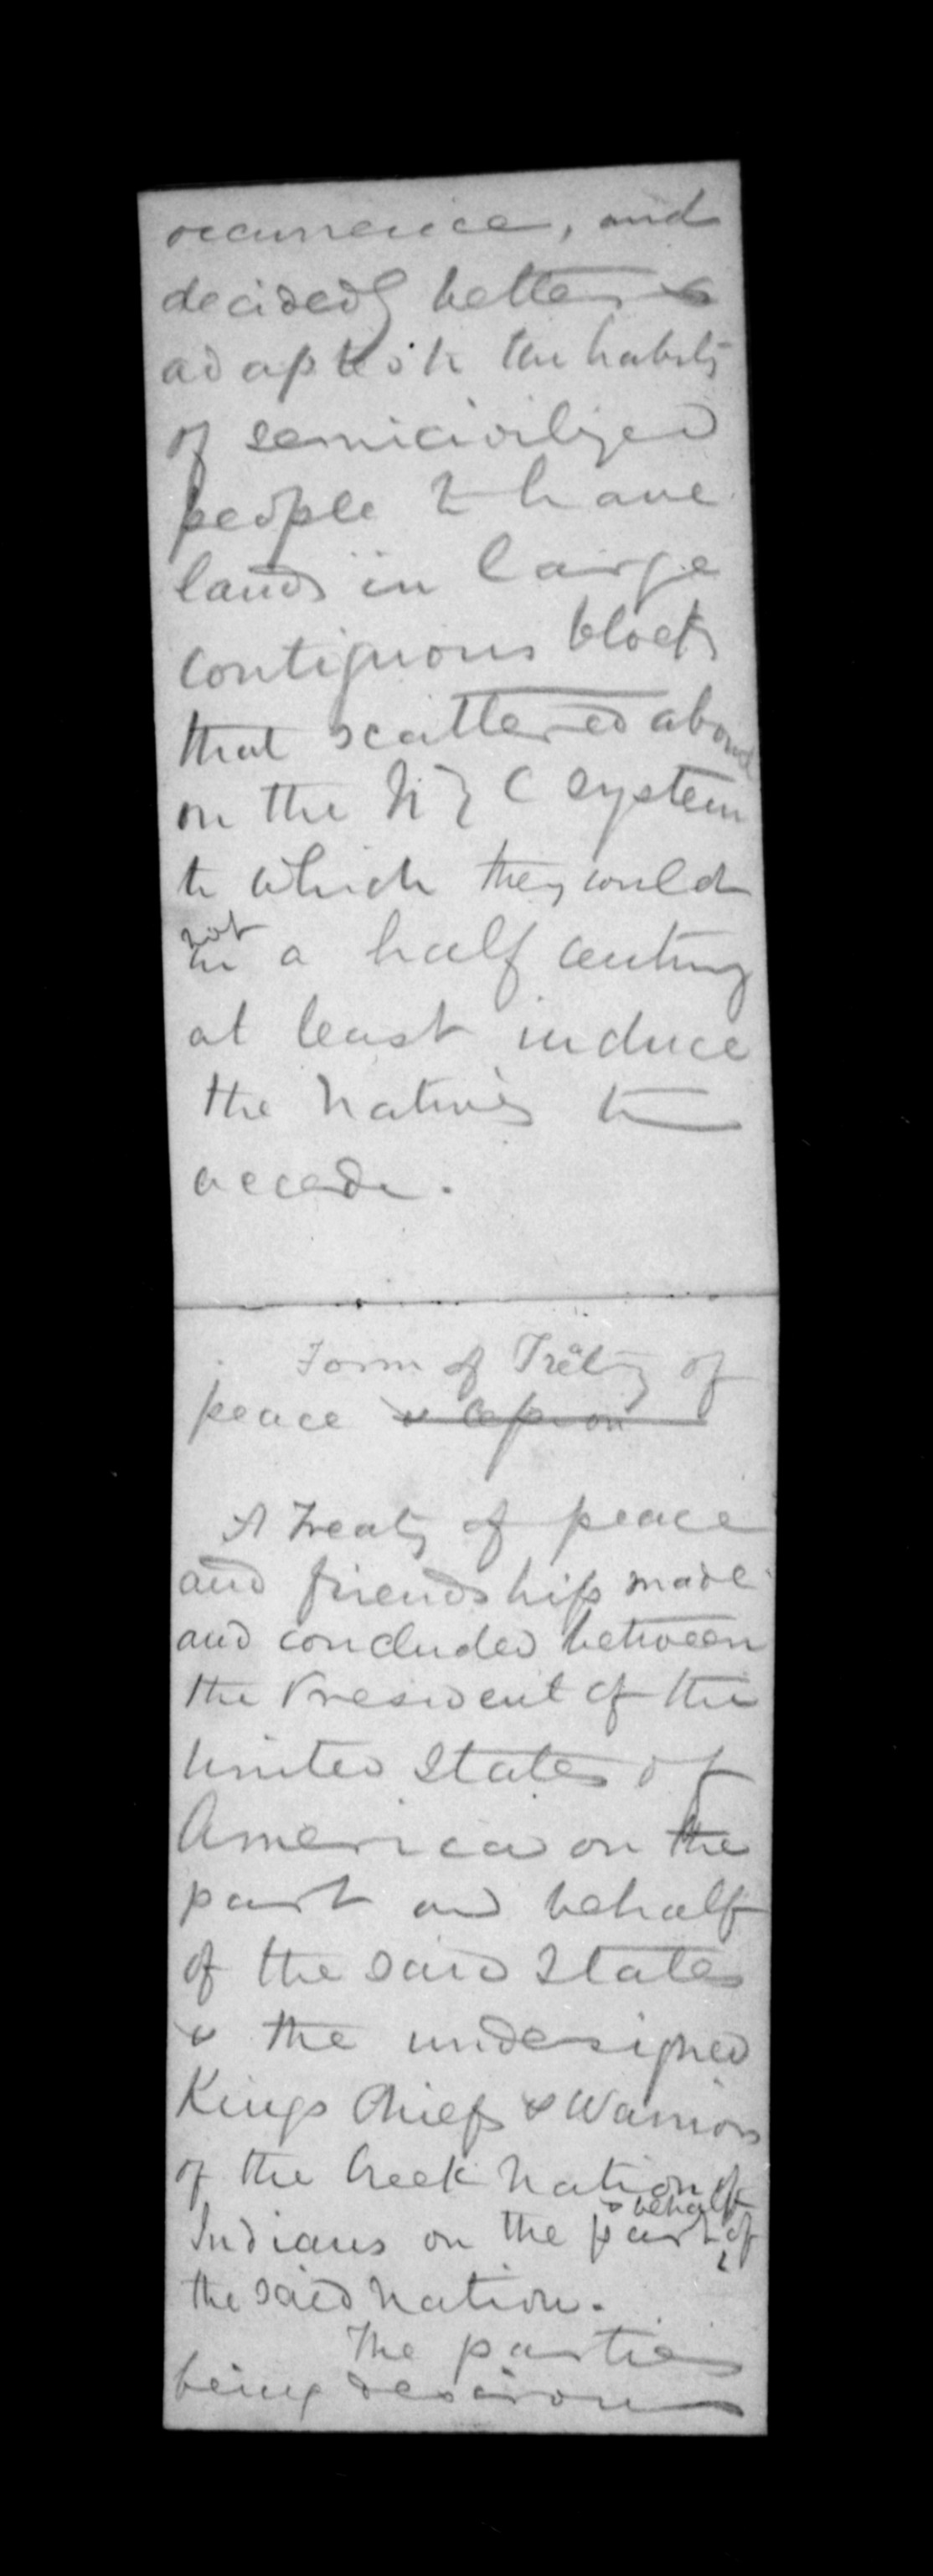 occurrence, and
decidedly better
adapted to the habits
of semicivilized
people to have
lands in large
contiguous blocks
that scattered about
on the N Z C system
to which they could
not
in a half century
at least induce
the natives to
accede.
Form of Treaty of
peace & cession
A Treaty of peace
and friendship made
and concluded between
the President of the
United States of
America on the
part and behalf
of the said States
& the undersigned
Kings Chiefs & Warriors
of the Creek Nation of
& behalf
Indians on the part of
the said nation.
The parties
being desirous